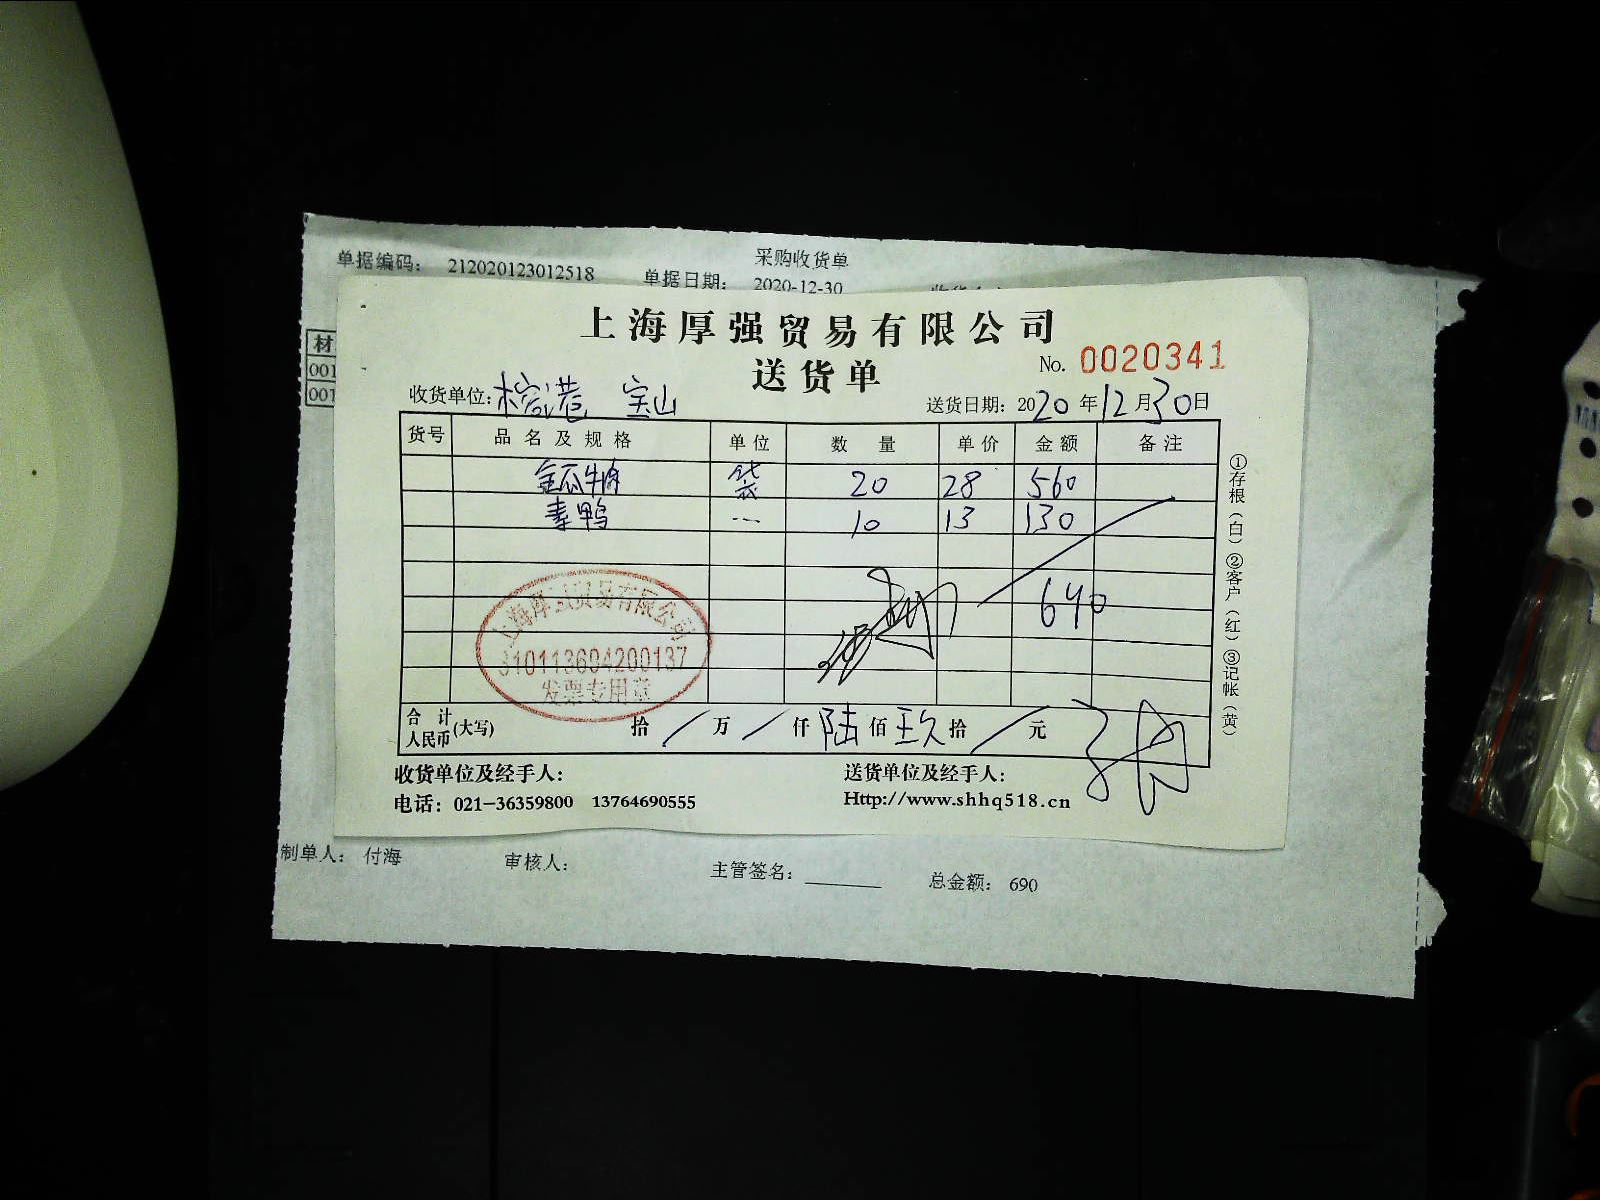 采购收货单
单据编码: 212020123012518 单据日期: 2020-12-30
材
001
001
上海厚强贸易有限公司
送货单
No. 0020341
收货单位: 榕港 宝山 送货日期: 2020年12月30日
货号 品名及规格 单位 数量 单价 金额 备注
金瓜 袋 20 28 560
素鸭 10 13 130
690
上海厚强贸易有限公司
310113694200137
发票专用章
合计人民币(大写) 拾 / 万 / 仟 陆 佰 玖 拾 / 元
①存根(白)②客户(红)③记帐(黄)
收货单位及经手人: 送货单位及经手人:
电话: 021-36359800 13764690555 Http://www.shhq518.cn
制单人: 付海 审核人: 主管签名: 总金额: 690